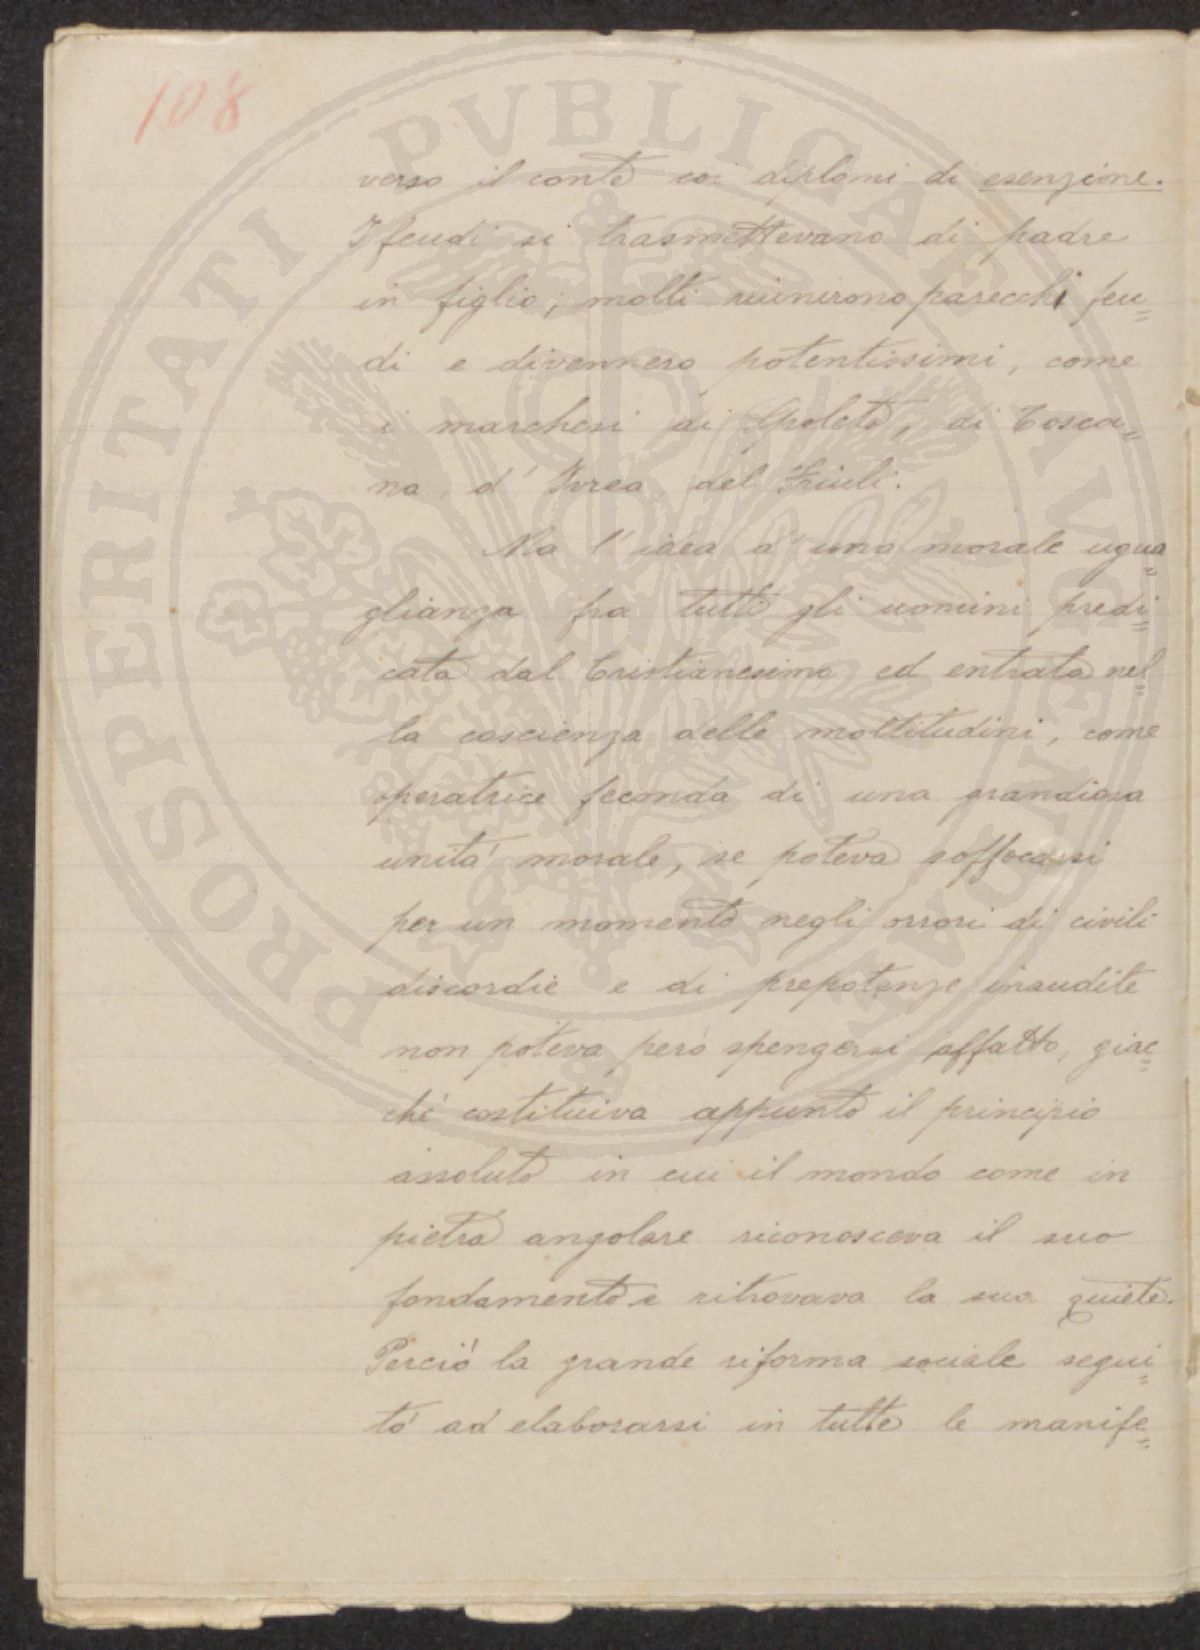 108
PROSPERITATI PVBLICAE AVGENDAE
verso il conte coi diplomi di esenzione.
I feudi si trasmettevano di padre
in figlio; molti riunirono parecchi feu=
di e divennero potentissimi, come
i marchesi di Spoleto, di Tosca=
na, d'Ivrea, del Friuli.
Ma l'idea d'una morale ugua=
glianza fra tutti gli uomini predi=
cata dal Cristianesimo ed entrata nel=
la coscienza delle moltitudini, come
operatrice feconda di una grandiosa
unità morale, se poteva soffocarsi
per un momento negli orrori di civili
discordie e di prepotenze inaudite
non poteva però spengersi affatto, giac=
chè costituiva appunto il principio
assoluto in cui il mondo come in
pietra angolare riconosceva il suo
fondamento e ritrovava la sua quiete.
Perciò la grande riforma sociale segui=
tò ad elaborarsi in tutte le manife=